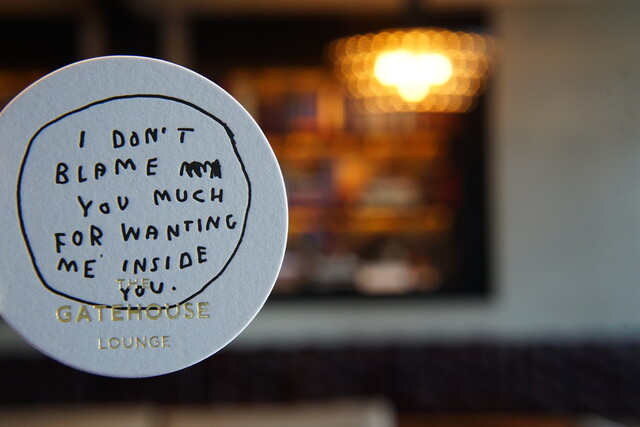 I DON'T
BLAME
YOU MUCH
FOR WANTING
ME INSIDE
YOU.
THE
GATEHOUSE
LOUNGE